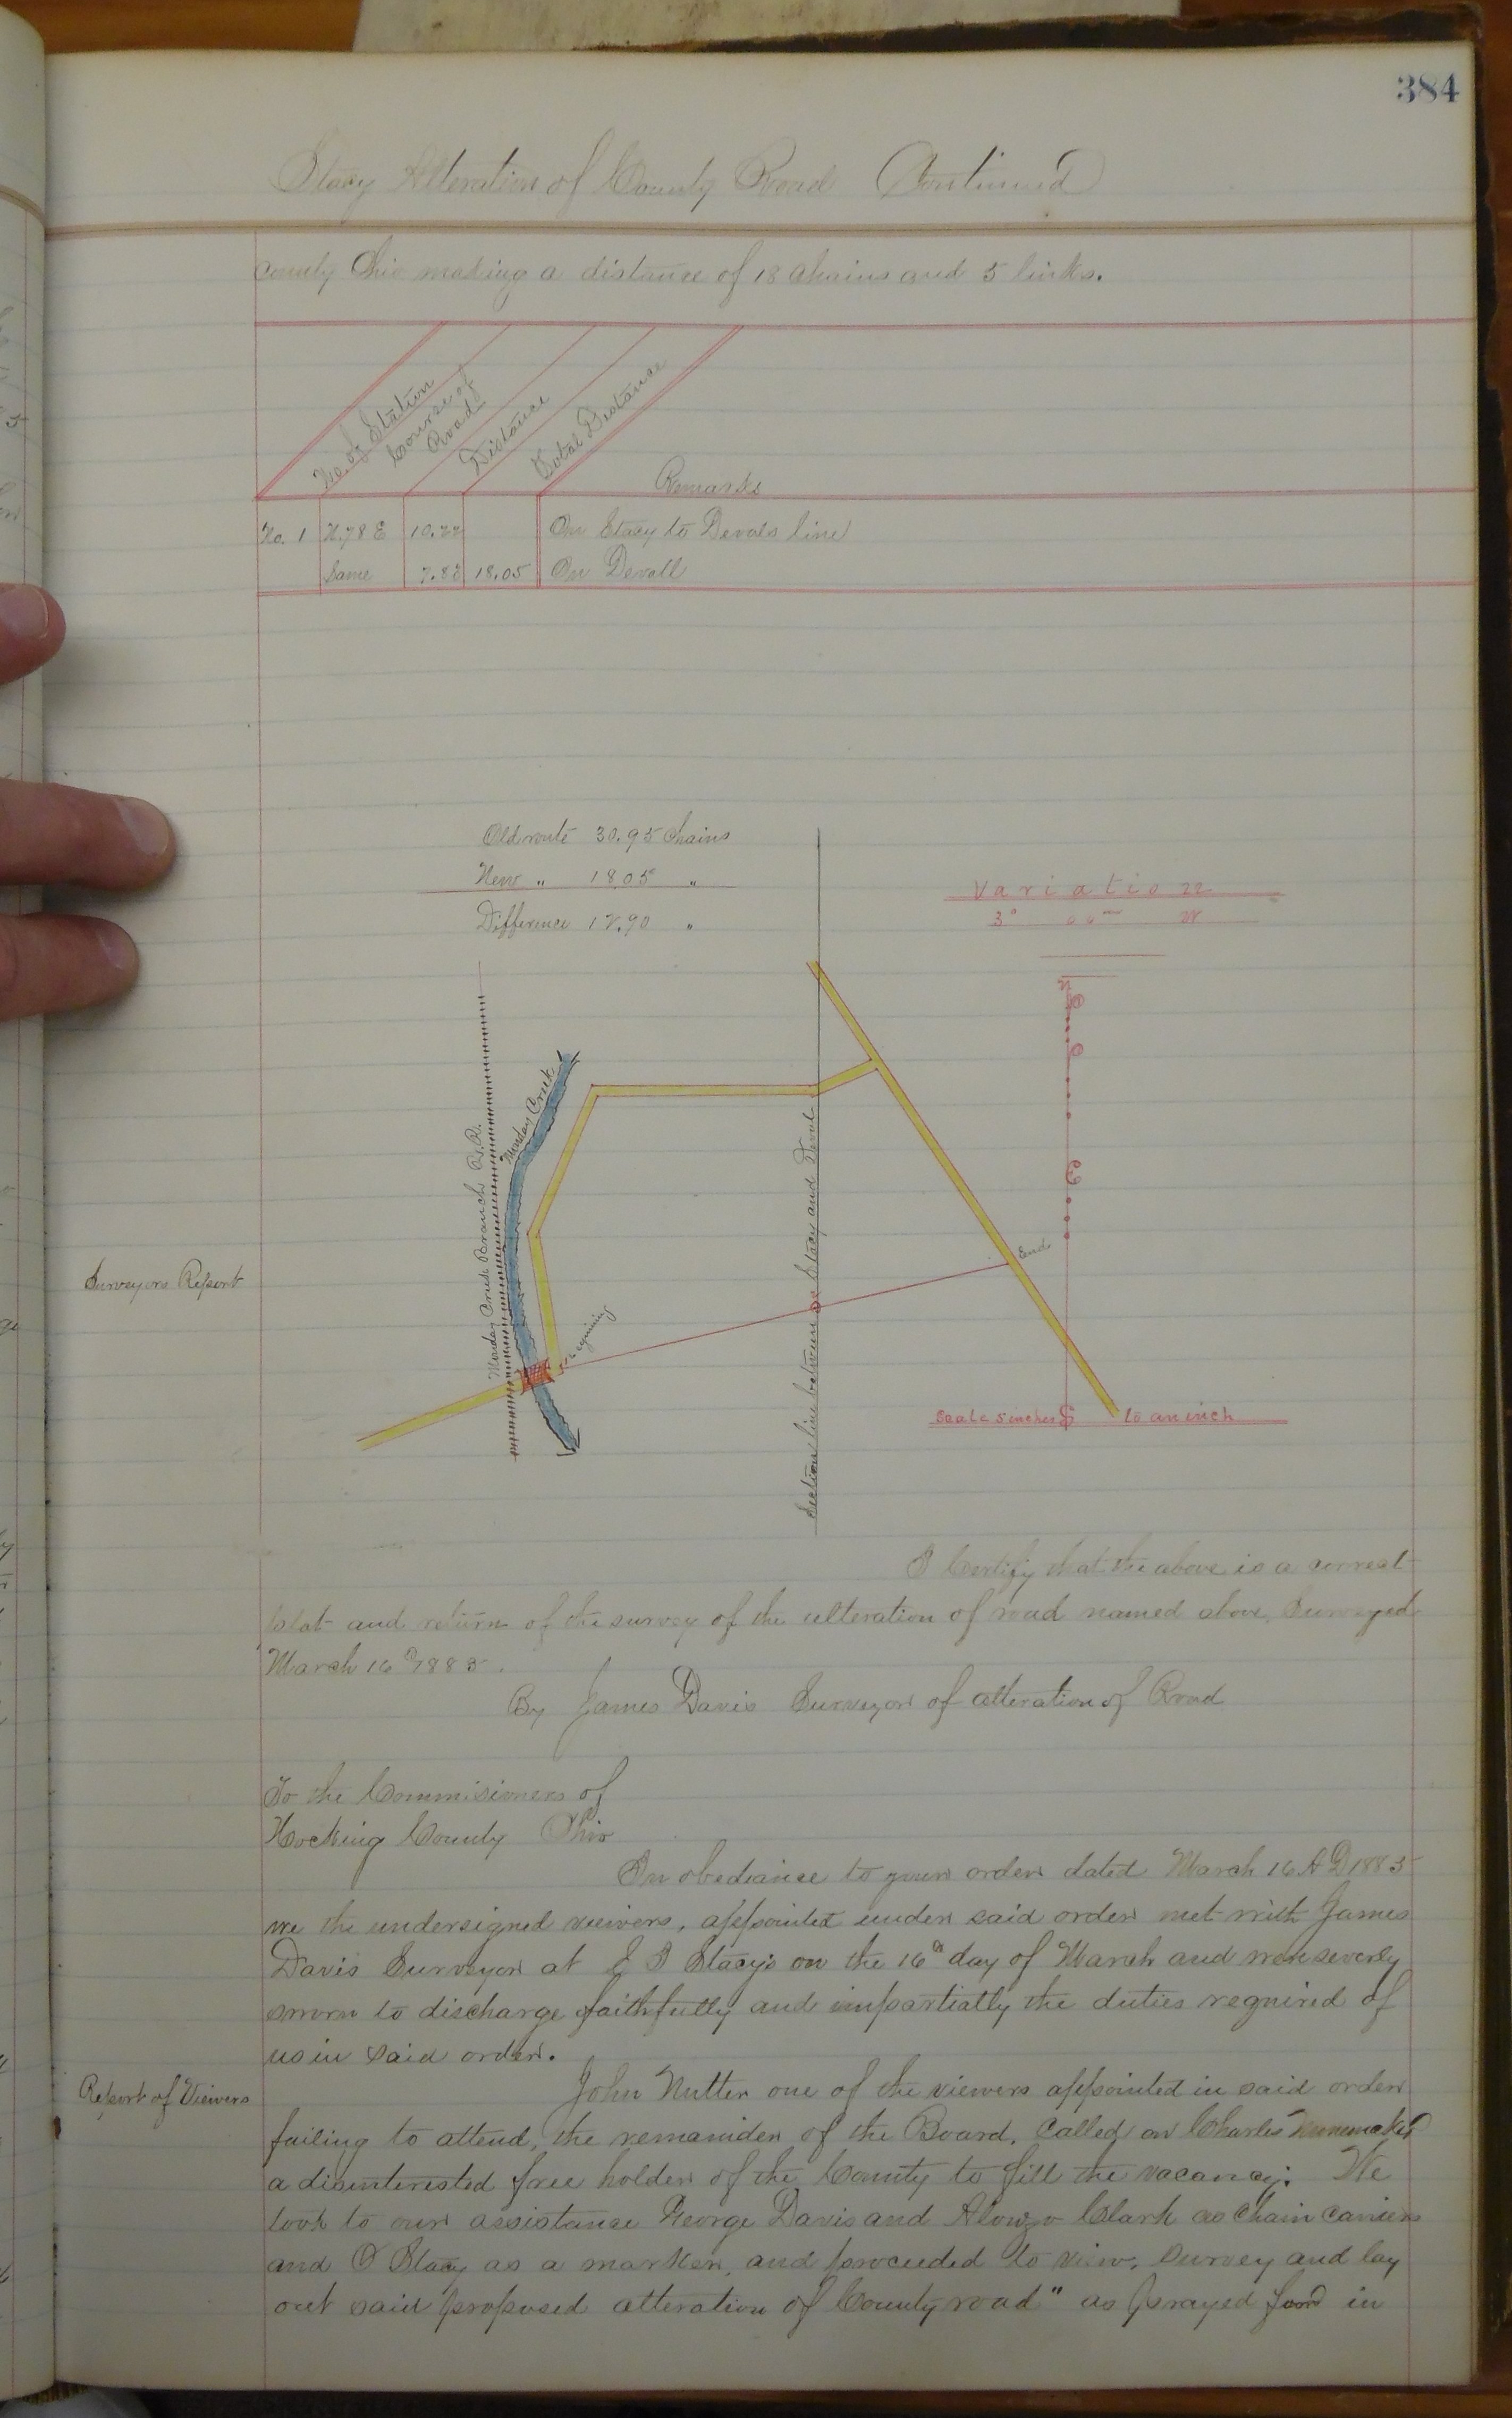 384
Stacy Alteration of County Road Continued
County Ohio making a distance of 18 Chains and 5 links.
No. of Station
Course of Road
Distance
Total Distance
Remarks
No. 1 N.78 E 10.22 On Stacy to Devals line
Same 7.83 18.05 On Devall
Old route 30.95 Chains
New " 18.05 "
Difference 12.90 "
Variation
3° W
N
Monday Creek
Monday Creek Branch R.R.
Section line between Stacy and Deval
Beginning
End
S
Scale 5 inches to an inch
Surveyors Report
I Certify that the above is a correct
plat and return of the survey of the alteration of road named above, Surveyed
March 16th 1883.
By James Davis Surveyor of alteration of Road
To the Commisioners of
Hocking County Ohio
In obediance to your order dated March 16 A D 1883
we the undersigned viewers, appointed under said order met with James
Davis Surveyor at E I Stacy's on the 16th day of March and were severly
sworn to discharge faithfully and impartially the duties required of
us in said order.
Report of Viewers
John Nutter one of the viewers appointed in said order
failing to attend, the remainder of the Board, Called on Charles Nunemaker
a disinterested free holder of the County to fill the vacancy. We
took to our assistance George Davis and Alonzo Clark as Chain Carriers
and O Stacy as a marker, and proceeded to view, survey and lay
out said proposed alteration of County road" as prayed for in